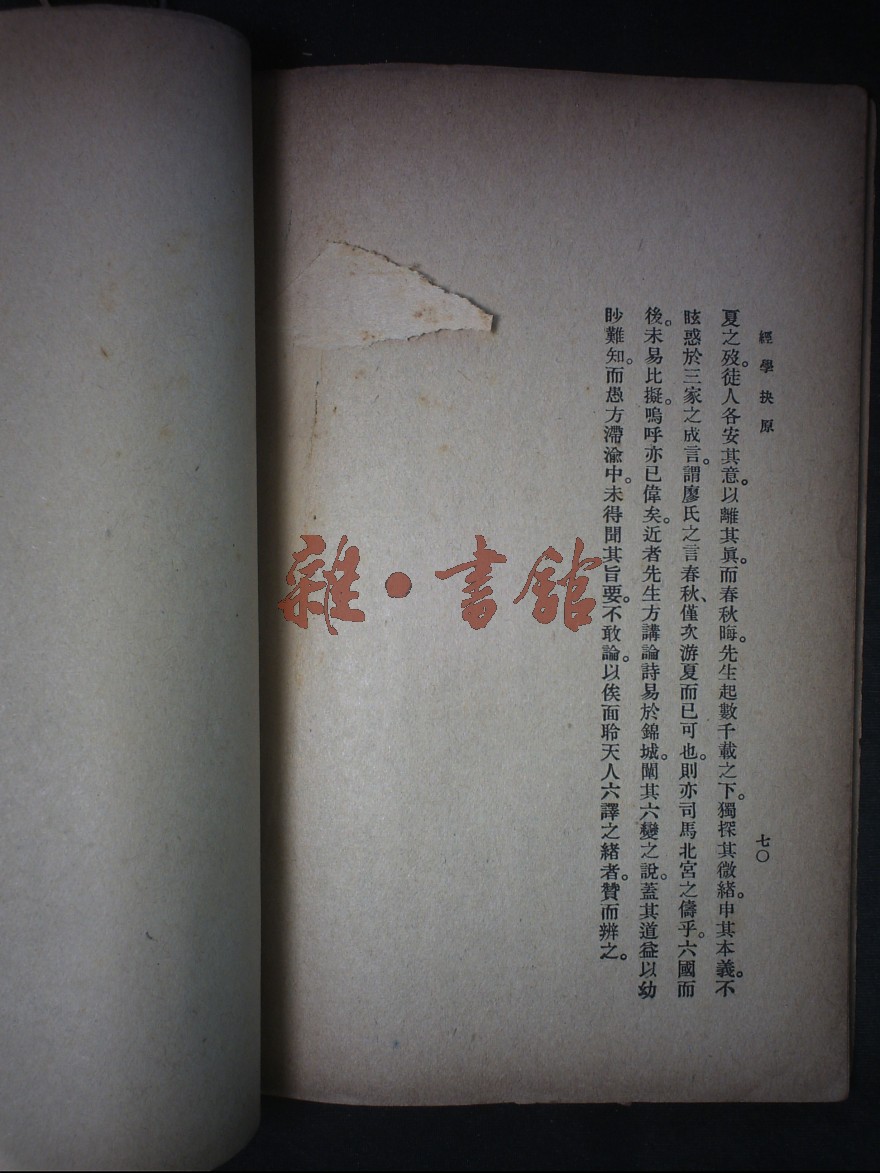 經學抉原
七〇
夏之歿。徒人各安其意。以離其眞。而春秋晦。先生起數千載之下。獨探其微緒。申其本義。不
眩惑於三家之成言。謂廖氏之言春秋、僅次游夏而已可也。則亦司馬北宮之儔乎。六國而
後。未易比擬。嗚呼亦已偉矣。近者先生方講論詩易於錦城。闡其六變之說。蓋其道益以幼
眇難知。而愚方滯渝中。未得聞其旨要。不敢論。以俟面聆天人六譯之緒者。贊而辨之。
雜·書館